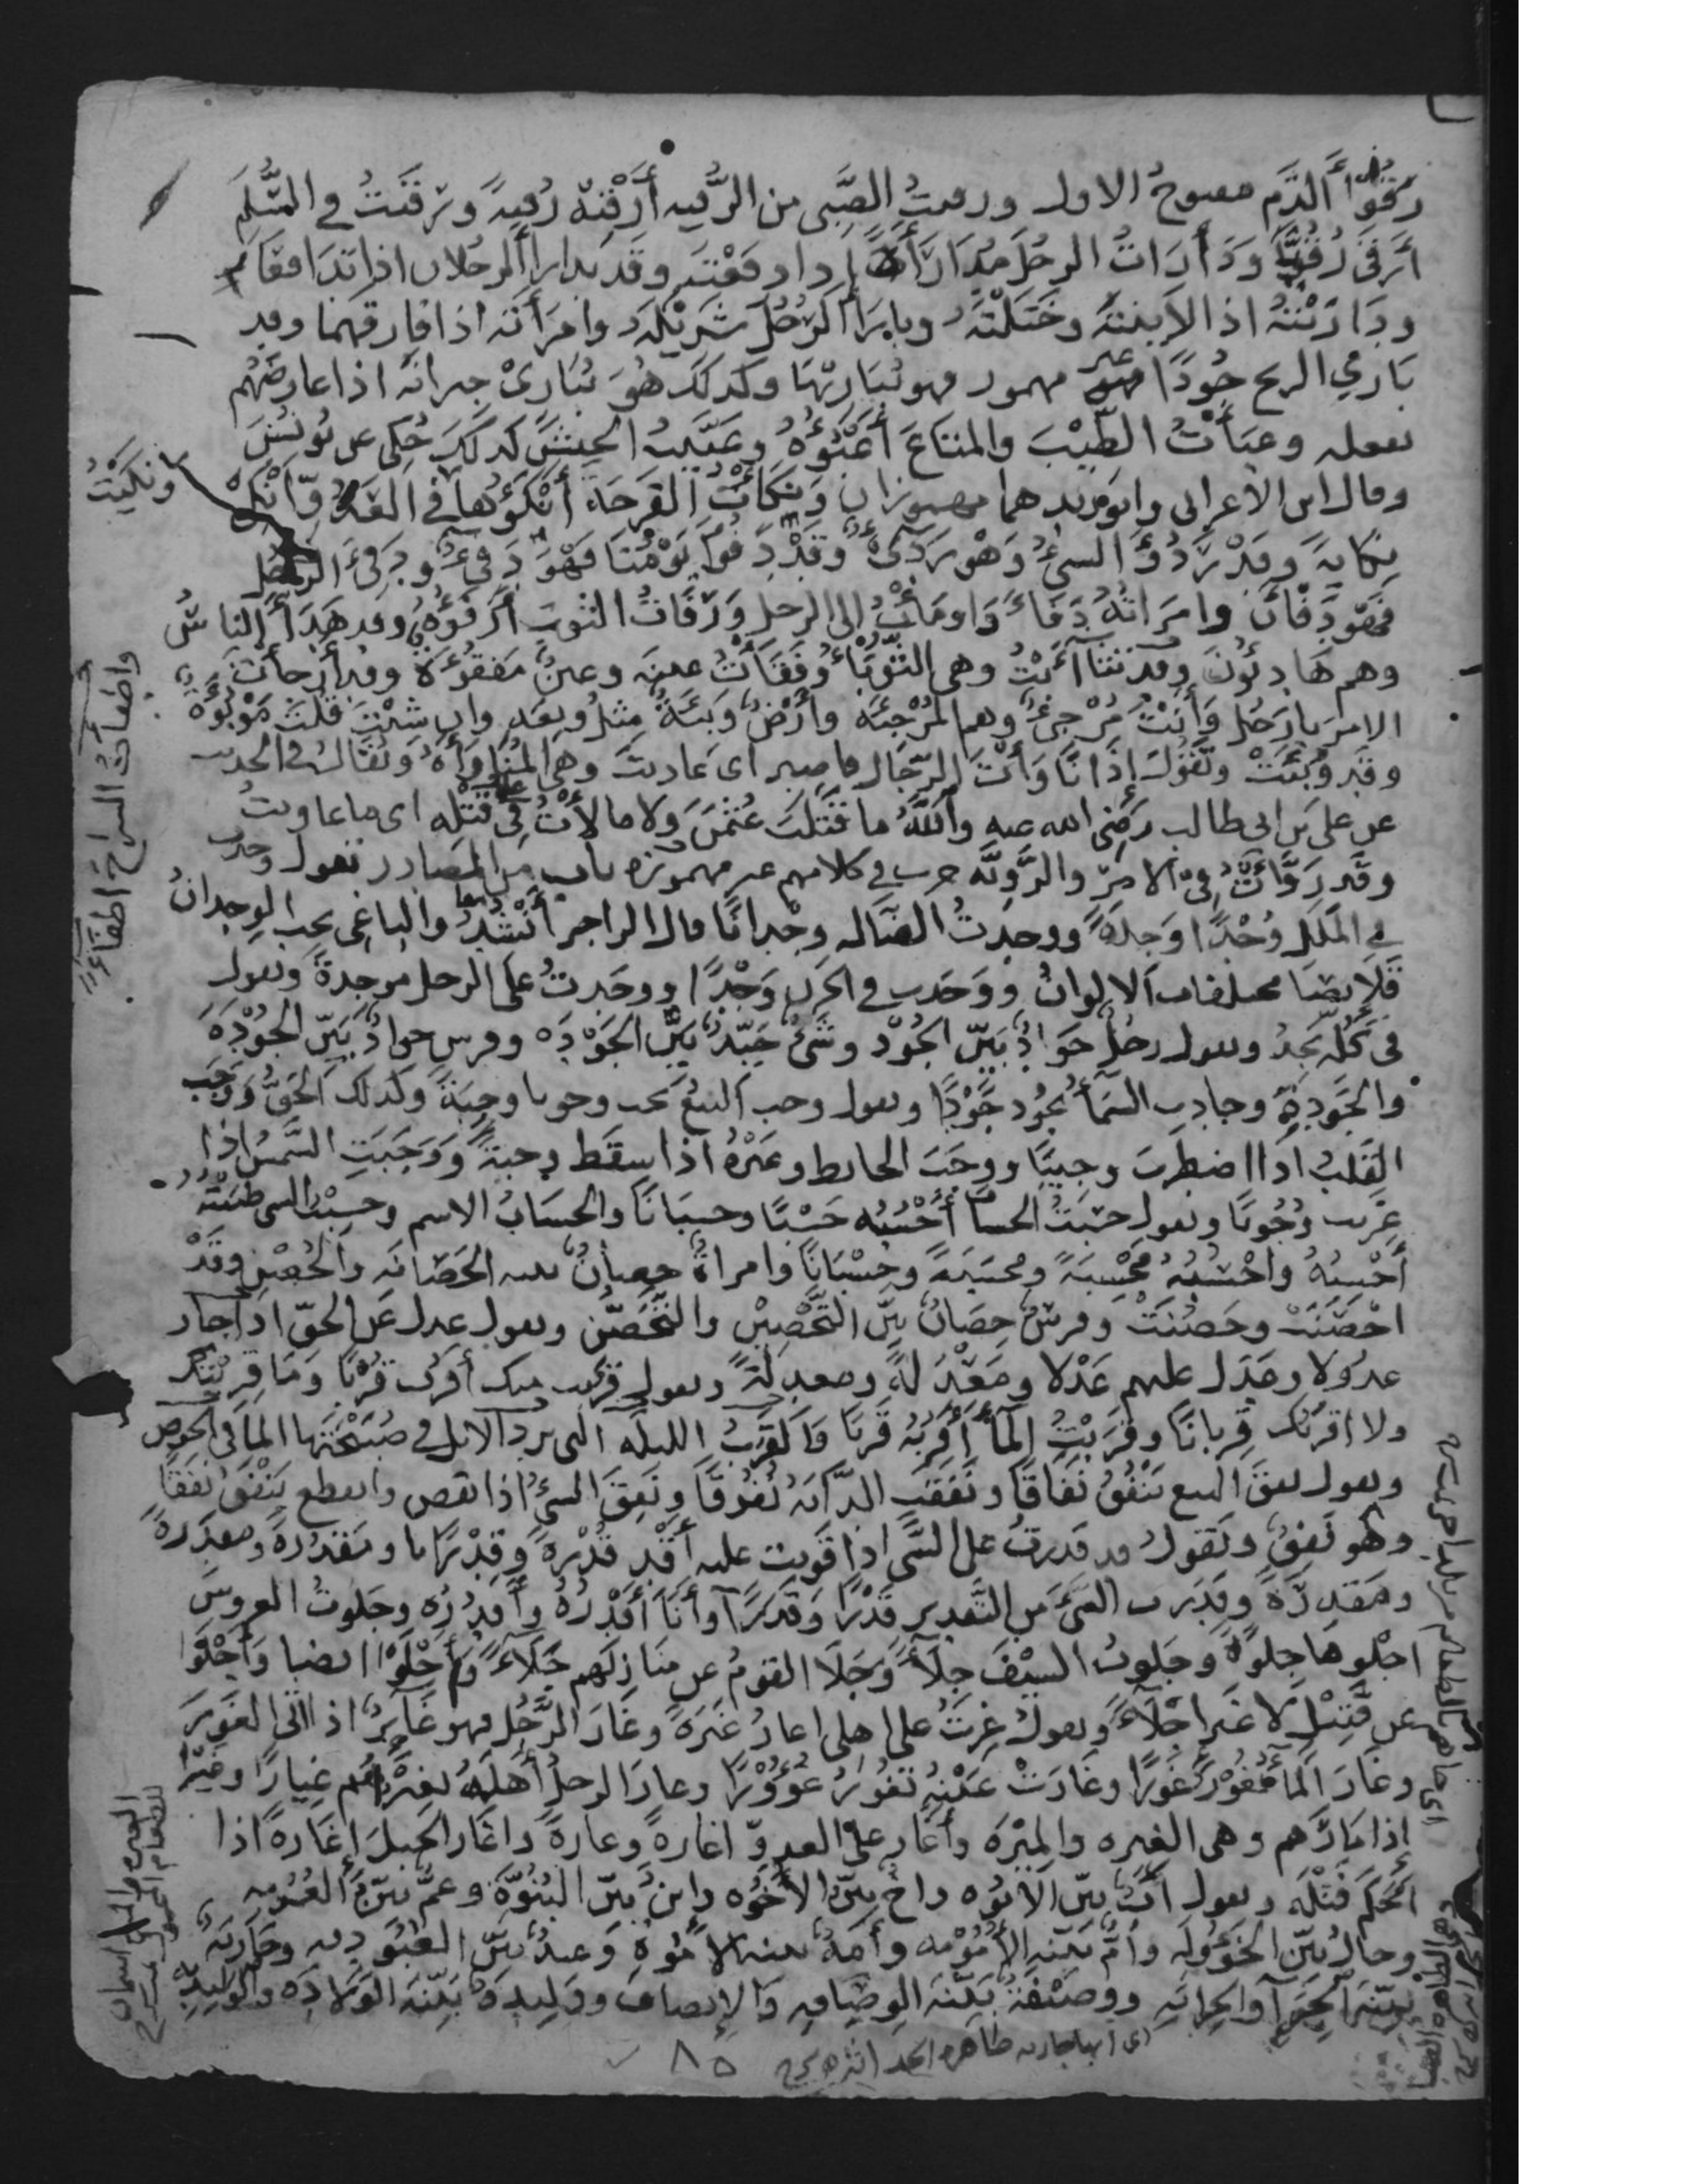 رقوًا الدَّم مفتوحُ الاول ورقيتُ الصَّبى من الرُّقيه أَرْقِيْهُ رُقيةً ورقِيْتُ في السُّلَّمِ
أَرقى رُقيًّا ودَارَأتُ الرجُلَ مُدَارَأةً اذا دافعْتَه وقد تدارأ الرجُلان اذا تدافعا
ودَارَيْتُهُ اذا لايَنتَهُ وخَتَلْتَه وبارَأَ الرَّجُلُ شَرِيْكَهُ وامرَأتَه اذا فارقهما وقد
بَارى الريح جُودًا غير مهموز فهو يُبَارِيْهَا وكذلك هُوَ يُبَارِىْ جيرانَهُ اذا عارضَهُم
بفعله وعبأتُ الطِّيْبَ والمتاعَ أَعْبَؤُهُ وعَبَّيتُ الجيشَ كذلكَ حُكى عن يُونُسَ
وقال ابن الأعرابى وابو زيد هما مهموزان ونكَأتُ القَرحَةَ أَنْكَؤُها ونكَيْتُ في العَدُوّ أَنْكِى
نِكايةً وقد رَدُؤَ الشىُ وَهْو رَدِىءٌ وقَدْ دَفُؤَ يَوْمُنا فَهْوَ دَفِىءٌ ودَفِئَ الرجُل
فَهْوَ دَفْآنُ وامرَاتُهُ دَفْأَى وَاومَأتُ الى الرجل ورَفَأتُ الثوبَ أَرفَؤُهُ وقد هَدَأَ الناسُ
وهم هَادِئُونَ وقد تثاءَبْتُ وهى الثُّؤَباءُ وفَقَأتُ عينَه وعينٌ مَفقُوءَةٌ وقد أَرجأتُ
الامرَ يا رَجُل وَأنتَ مُرْجِئٌ وهم المُرْجِئَة وأَرْضٌ وَبِئَةٌ مِثلُ وبِعَةٍ وان شِئتَ قلتَ مَوْبُوءَةٌ
وقد وُبِئَتْ وتَقُولُ اذا نَاوَأتَ الرِّجَال فاصبر اى عاديتَ وهى المُنَاوَأَةُ ويُقَالُ فى الحديث
عن على بن ابى طالب رَضى الله عنه واللّٰهُ ما قَتَلتُ عُثمٰنَ ولا مالأْتُ على قَتْلِه اى ما عاونتُ
وقد رَوَّأتُ فى الامرِ والرَّوِيَّه جرت في كلامهم غير مهموزه باب من المصادر تقول وجدت
في المَالِ وُجْدًا وجِدَةً ووجدتُ الضَّالة وِجْدانًا قال الراجز أَنْشُدُ والباغى يحب الوِجدانْ
قَلائصًا مختلفات الالوانْ ووَجَدت في الحزن وَجْدًا ووجَدتُ على الرجل موجِدةً وتقول
فى كُلّه يَجِدُ وتقول رجلٌ جَوَادٌ بَيّن الجُوْد وشىءٌ جَيّدٌ بَيّن الجَوْدَه وفرس جوادٌ بَيّن الجُوْدَه
والجَودةِ وجادت السَّمآءُ تجُود جَوْدًا وتقول وجب البَيْعُ يجب وجوبا وجِبَةً وكذلك الحَقُّ وَوَجَب
القَلبُ اذا اضطربَ وجيبًا ووجَبَ الحائط وغيْرُهُ اذا سقَط وجبةً ووَجَبَتِ الشَّمسُ اذا
غربت وُجُوبًا وتقول حسَبتُ الحسابَ أَحْسُبُه حَسْبًا وحسبَانًا والحسَابُ الاسم وحسِبْتُ الشى ظننتُهُ
أَحْسِبُهُ وأحْسَبُهُ مَحْسِبَةً ومحسَبةً وحِسْبَانًا وامراةٌ حصانٌ بينه الحَصَانَه والحُصْن وقَدْ
احْصَنَتْ وحَصُنَتْ وفرسٌ حِصَانٌ بيّن التَّحْصِيْن والتَّحَصُّن وتقول عدل عَن الحقّ اذا جار
عدُولا وعَدَل عليهم عَدْلا ومَعْدَلَةً ومعدِلَةً وتقول قرُبت منك أقرُب قُرْبًا وَمَا قرِبْتُك
ولا اقرَبُك قِربانًا وقَرَبْتُ المآءَ أَقرُبُهُ قَرَبًا وَالقَرَبُ الليلَه التى ترد الابل في صَبِيْحَتِها المآ فى الحوض
وتقول نفقَ البيع يَنْفُقُ نَفَاقًا ونَفَقَتِ الدَّابَّة نُفُوقًا ونَفِقَ الشىُ اذا نقص وانقطع يَنْفَقُ نَفَقًا
وهْو نَفِقٌ وتَقولُ قد قدرتُ على الشَّى اذا قَويت عليه أَقْدِر قُدْرَةً وقِدْرَانا ومَقدُرَةً ومقدَرَةً
ومَقدِرَةً وقَدَرت الشىءَ من التَّقدير قَدْرًا وقَدَرًا وأَنَا أَقْدِرُهُ وأَقدُرُه وجَلَوتُ العروسَ
اجلوهَا جِلوَةً وجلوتُ السيْفَ جِلآءً وَجَلَا القومُ عن منَازِلهم جَلآءً وأَجْلَوْا ايضا وأَجْلَوْا
عن قَتِيْلٍ لا غيرَ اجْلآءً وتقول غِرتُ على اهلى اغارُ غَيرَةً وغَارَ الرَّجُل فهو غَايرٌ اذا اتى الغَورَ
وغَارَ المآءُ يَغُوْرُ غَورًا وغَارَتْ عَيْنُهُ تَغُورُ غُؤُوْرًا وغارَ الرجلُ أَهلَهُ يَغِيْرُهُم غِيَارًا وغَيْرًا
إذا مَارَهم وهى الغِيره والمِيْرَه وأَغَار على العدوّ اغارةً وغارةً واغَار الحبلَ إغَارَةً اذا
احْكَمَ فَتْلَه وتقول أبٌ بيّن الأبُوّه واخٌ بيّن الأُخوّه وابنٌ بيّن البُنُوَّة وعمٌّ بيّنُ العُمُومه
وخالٌ بيّن الخَؤُولَه وأُمٌّ بَيّنه الأُمُوْمه وأَمَةٌ بينه الأُمُوّة وعبدٌ بيّن العُبُودِيه وجَارِيَةٌ
بيّنَه الجَرَآءِ والجِرَايَهِ ووصيْفَةٌ بَيّنَه الوصَافه والإيصاف ووَلِيدةٌ بَيّنَه الوَلادَه والوَلِيديّة
واطفأتُ السراجَ اطفاءً
ونكَيْتُ
٨٥